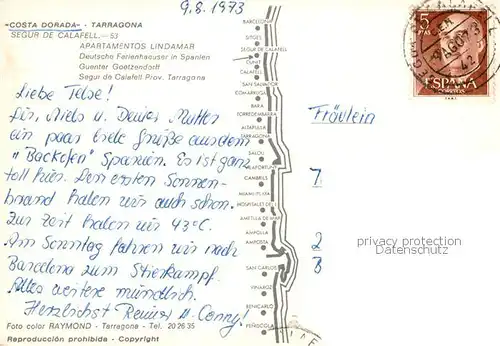 9.8.1973
"COSTA DORADA" - TARRAGONA
SEGUR DE CALAFELL.-53
APARTAMENTOS LINDAMAR
Deutsche Ferienhaeuser in Spanien
Guenter Goetzendorff
Segur de Calafell. Prov. Tarragona
Liebe Telse!
Dir, Niels u. Deiner Mutter
ein paar liebe Grüße aus dem
"Backofen" Spanien. Es ist ganz
toll hier. Den ersten Sonnen-
brand haben wir auch schon.
Zur Zeit haben wir 43°C.
Am Sonntag fahren wir nach
Barcelona zum Stierkampf.
Alles weitere mündlich.
Herzlichst Reiner u. Conny!
Foto color RAYMOND - Tarragona - Tel. 20 26 35
Reproducción prohibida - Copyright
BARCELONA
SITGES
SEGUR DE CALAFELL
CALAFELL
SAN SALVADOR
COMARRUGA
BARA
TORREDEMBARRA
ALTAFULLA
TARRAGONA
SALOU
VILAFORTUNY
CAMBRILS
MIAMI-PLAYA
HOSPITALET
AMETLLA DE MAR
AMPOLLA
AMPOSTA
SAN CARLOS
VINAROZ
BENICARLO
PEÑISCOLA
Fräulein
7
2
B
5
PTAS
ESPAÑA
CORREOS
privacy protection
Datenschutz